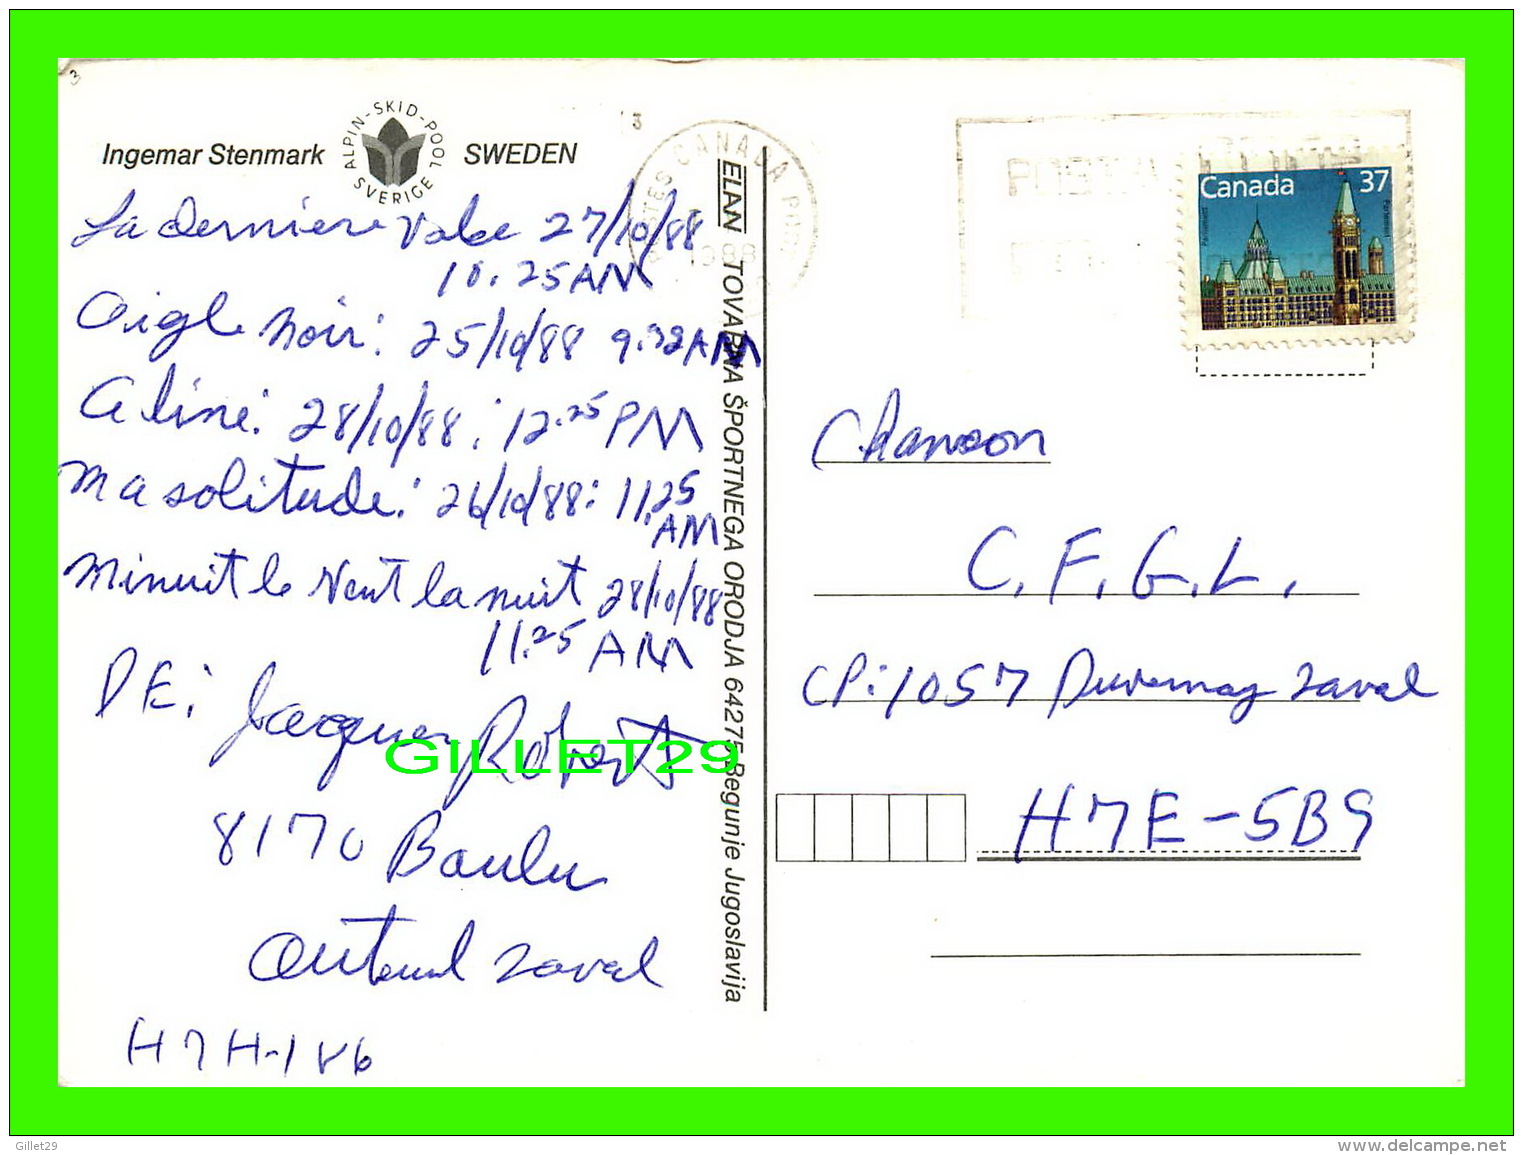 3
Ingemar Stenmark
ALPIN-SKID-POOL
SVERIGE
SWEDEN
La derniere Valse 27/10/88
10.25 AM
Aigle Noir: 25/10/88 9:32 AM
Aline: 28/10/88: 12.25 PM
Ma solitude: 26/10/88: 11.25
AM
Minuit le Vent la nuit 28/10/88
11.25 AM
DE: Jacques Robert
8170 Baulu
Auteuil Laval
H7H-1V6
GILLET29
ELAN TOVARNA ŠPORTNEGA ORODJA 64275 Begunje Jugoslavija
POSTES CANADA
Canada 37
Parlement
Parliament
Chanson
C.F.G.L.
CP: 1057 Duvernay Laval
H7E-5B9
Gillet29
www.delcampe.net